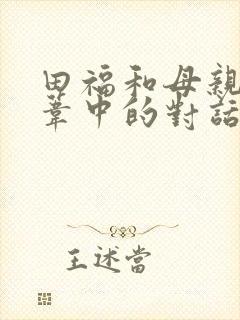 田福和母親
葦中的對話
王述當